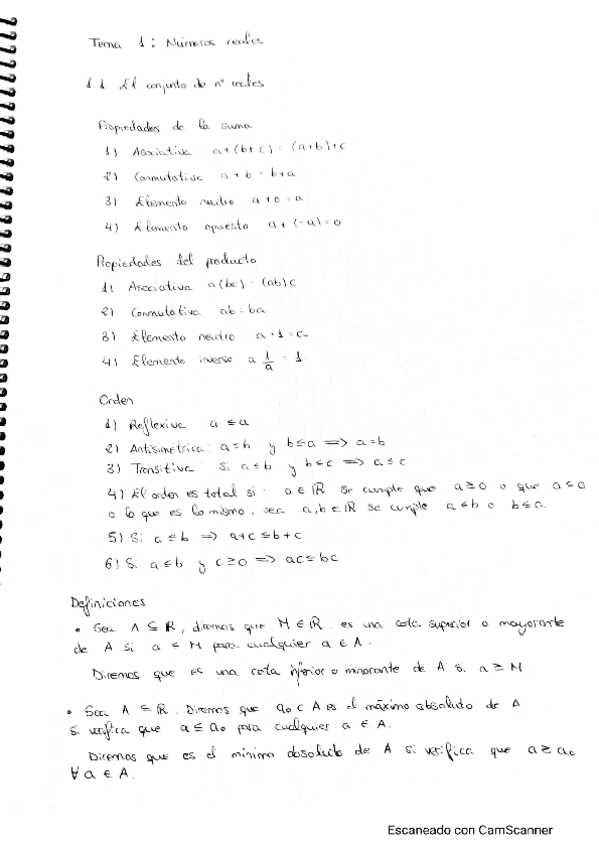 Tema 1: Números reales
1.1 El conjunto de nº reales
Propiedades de la suma
1) Asociativa a+(b+c) = (a+b)+c
2) Conmutativa a+b = b+a
3) Elemento neutro a+0=a
4) Elemento opuesto a+(-a)=0
Propiedades del producto
1) Asociativa a(bc) = (ab)c
2) Conmutativa ab=ba
3) Elemento neutro a·1=a
4) Elemento inverso a 1/a = 1
Orden
1) Reflexiva a ≤ a
2) Antisimétrica: a≤b y b≤a => a=b
3) Transitiva Si a≤b y b≤c => a≤c
4) El orden es total si: a ∈ ℝ se cumple que a≥0 o que a≤0
o lo que es lo mismo, sea a,b ∈ ℝ se cumple a≤b o b≤a.
5) Si a≤b => a+c ≤ b+c
6) Si a≤b y c≥0 => ac≤bc
Definiciones
• Sea A ⊆ ℝ, diremos que M ∈ ℝ es una cota superior o mayorante
de A si a ≤ M para cualquier a ∈ A.
Diremos que es una cota inferior o minorante de A si a ≥ M
• Sea A ⊆ ℝ. Diremos que a₀ ∈ A es el máximo absoluto de A
si verifica que a ≤ a₀ para cualquier a ∈ A.
Diremos que es el mínimo absoluto de A si verifica que a ≥ a₀
∀ a ∈ A.
Escaneado con CamScanner